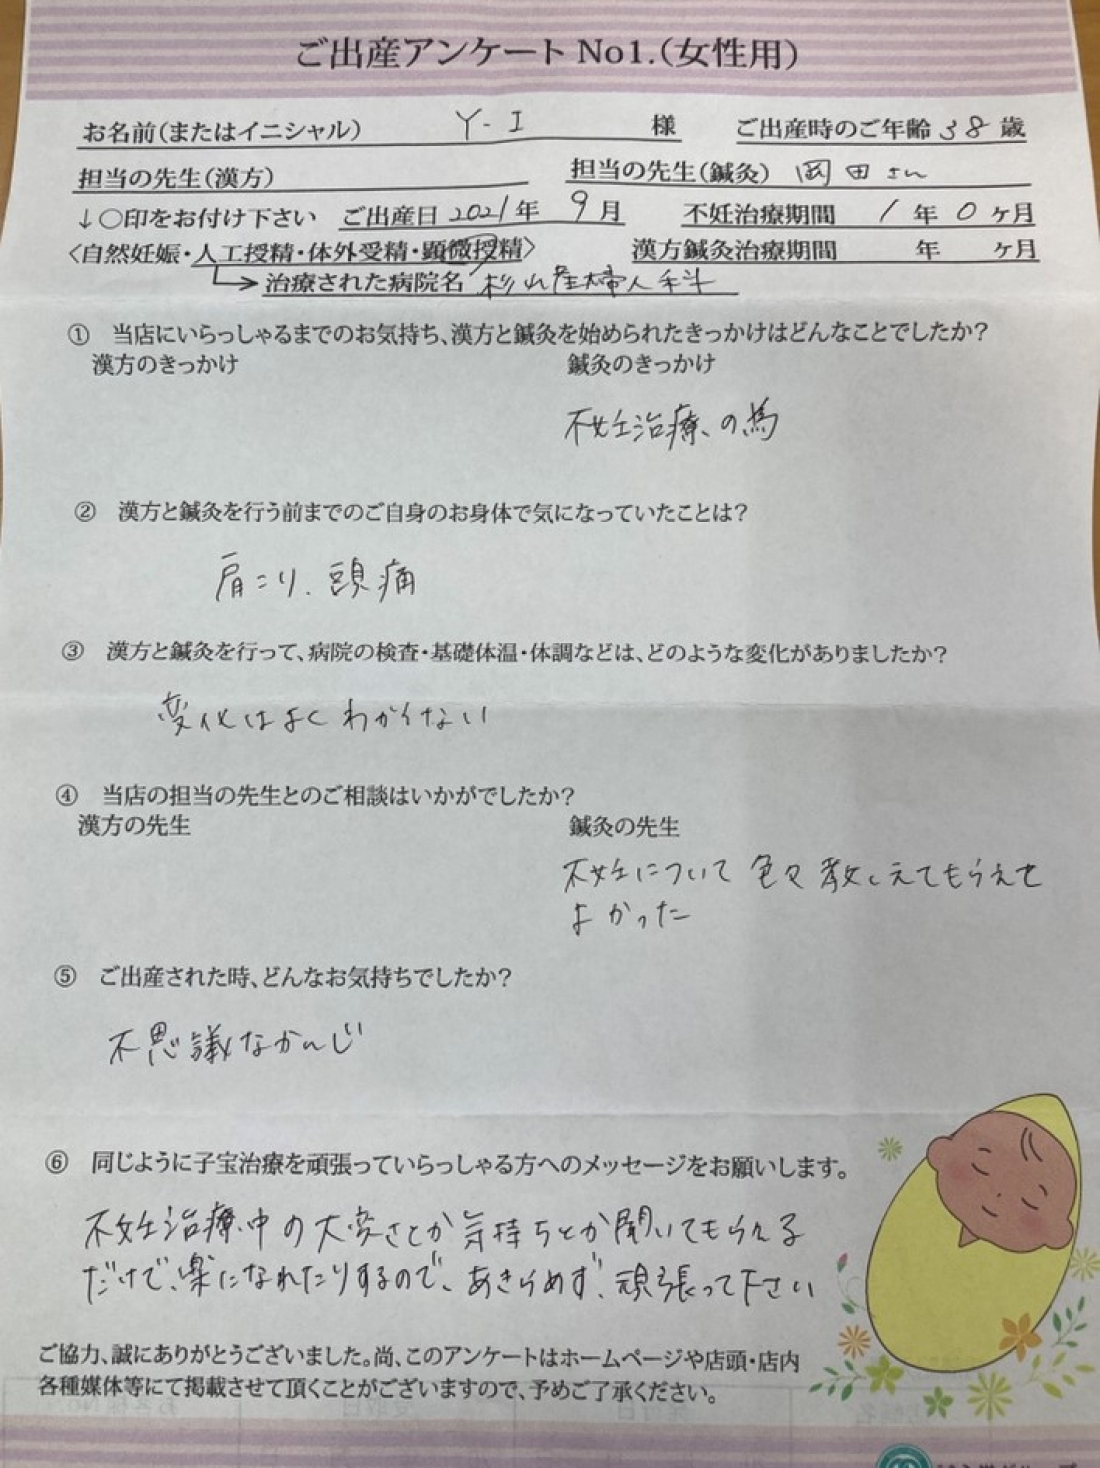 ご出産アンケート No1.(女性用)
お名前(またはイニシャル) Y-I 様 ご出産時のご年齢 38 歳
担当の先生(漢方) 担当の先生(鍼灸) 岡田さん
↓○印をお付け下さい ご出産日 2021年 9月 不妊治療期間 1年 0ヶ月
〈自然妊娠・人工授精・体外受精・顕微授精〉 漢方鍼灸治療期間 年 ヶ月
→治療された病院名 杉山産婦人科
① 当店にいらっしゃるまでのお気持ち、漢方と鍼灸を始められたきっかけはどんなことでしたか?
漢方のきっかけ 鍼灸のきっかけ
不妊治療の為
② 漢方と鍼灸を行う前までのご自身のお身体で気になっていたことは?
肩こり、頭痛
③ 漢方と鍼灸を行って、病院の検査・基礎体温・体調などは、どのような変化がありましたか?
変化はよくわからない
④ 当店の担当の先生とのご相談はいかがでしたか?
漢方の先生 鍼灸の先生
不妊について色々教しえてもらえて
よかった
⑤ ご出産された時、どんなお気持ちでしたか?
不思議なかんじ
⑥ 同じように子宝治療を頑張っていらっしゃる方へのメッセージをお願いします。
不妊治療中の大変さとか気持ちとか聞いてもらえる
だけで、楽になれたりするので、あきらめず、頑張って下さい
ご協力、誠にありがとうございました。尚、このアンケートはホームページや店頭・店内
各種媒体等にて掲載させて頂くことがございますので、予めご了承ください。